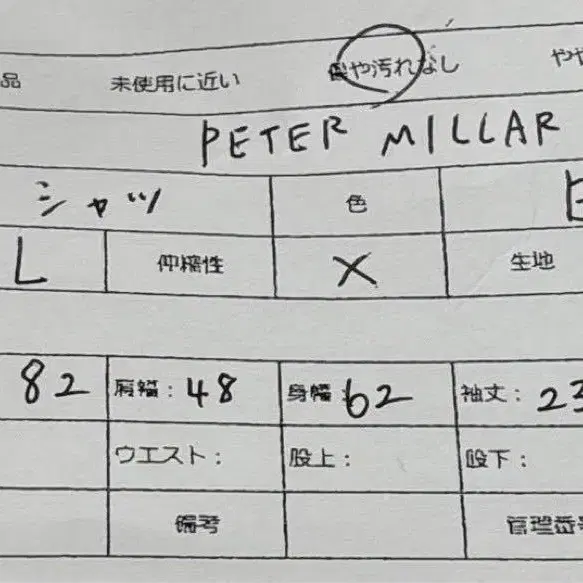 品 未使用に近い 傷や汚れなし やや
PETER MILLAR
シャツ 色
L 伸縮性 X 生地
82 肩幅:48 身幅:62 袖丈:23
ウエスト: 股上: 股下:
備考 管理番号